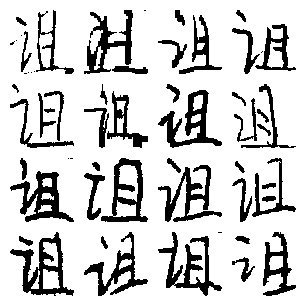 诅诅诅诅
诅诅诅诅
诅诅诅诅
诅诅诅诅